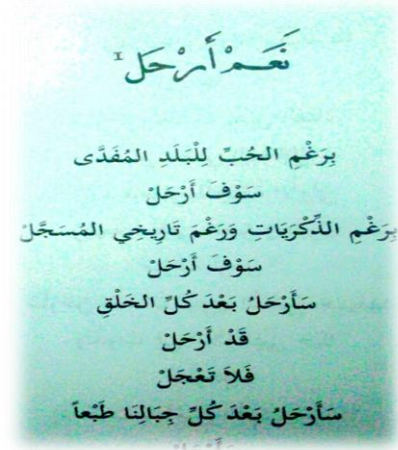 نَعَمْ أَرْحَل
بِرَغْمِ الحُبِّ لِلْبَلَدِ المُفَدَّى
سَوْفَ أَرْحَلْ
بِرَغْمِ الذِّكْرَيَاتِ وَرَغْمَ تَارِيخِي المُسَجَّلْ
سَوْفَ أَرْحَلْ
سَأَرْحَلُ بَعْدَ كُلِّ الخَلْقِ
قَدْ أَرْحَلْ
فَلاَ تَعْجَلْ
سَأَرْحَلُ بَعْدَ كُلِّ جِبَالِنَا طَبْعاً